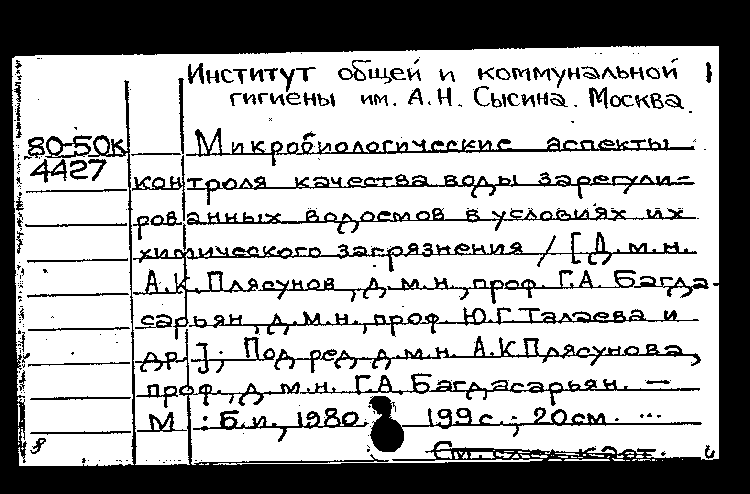 Институт общей и коммунальной 1
гигиены им. А.Н. Сысина. Москва.
80-50к
4427
Микробиологические аспекты
контроля качества воды зарегули=
рованных водоемов в условиях их
химического загрязнения / [Д.м.н.
А.К. Плясунов, д.м.н., проф. Г.А. Багда-
сарьян, д.м.н., проф. Ю.Г. Талаева и
др.]; Под ред. д.м.н. А.К. Плясунова,
проф., д.м.н. Г.А. Багдасарьян. —
М : Б.и., 1980. 199 с.; 20 см. ...
8 См. след. карт.